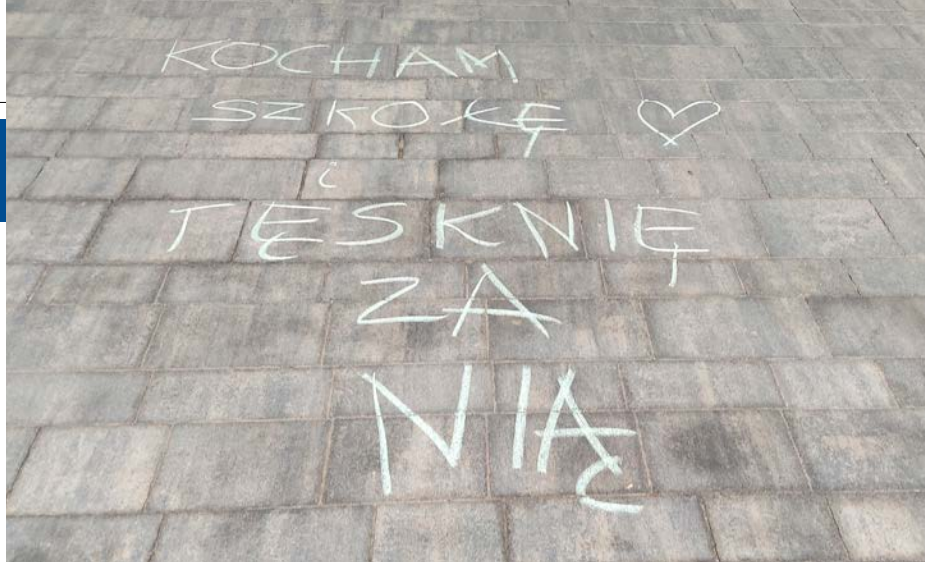 KOCHAM
SZKOŁĘ ♡
i
TĘSKNIĘ
ZA
NIĄ